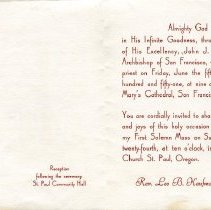 Almighty God
in His Infinite Goodness, thro
of His Excellency, John J.
Archbishop of San Francisco,
priest on Friday, June the fift
hundred and fifty-one, at nine o
Mary's Cathedral, San Francis
You are cordially invited to shar
and joys of this holy occasion
my First Solemn Mass on Su
twenty-fourth, at ten o'clock, in
Church St. Paul, Oregon.
Rev. Leo B.
Reception
following the ceremony
St. Paul Community Hall